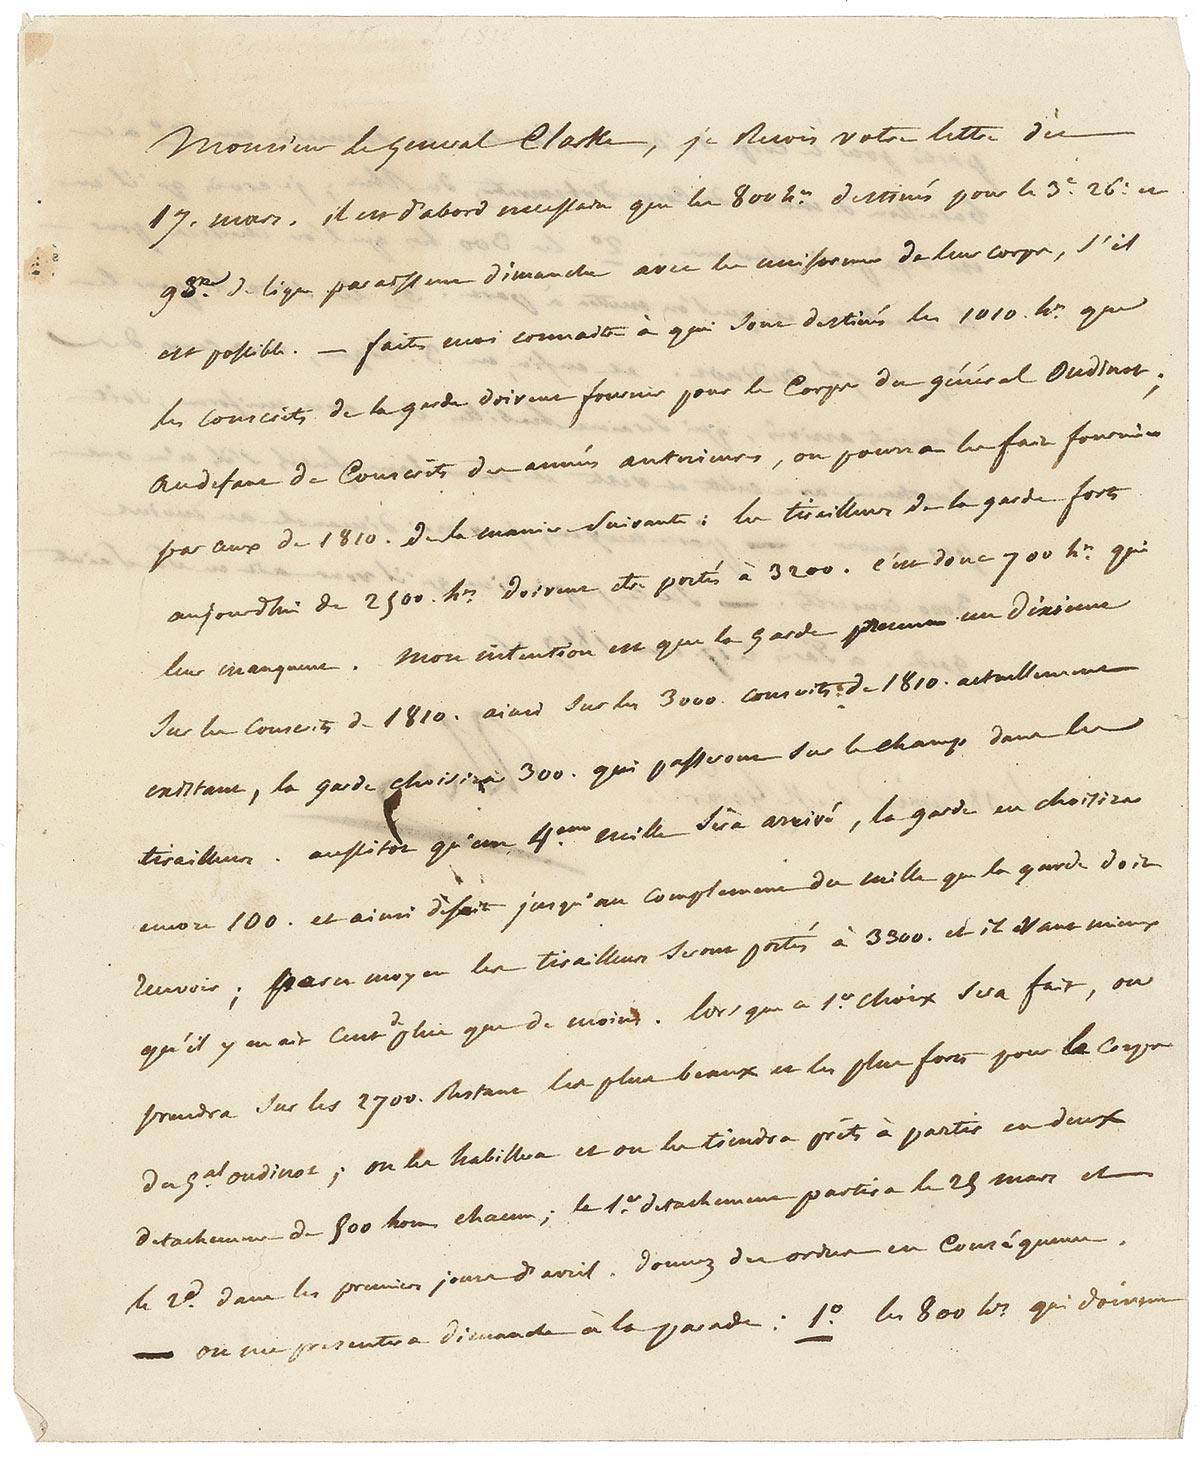 Monsieur le général Clarke, je reçois votre lettre du
17. mars. il est d'abord nécessaire que les 800 hes destinés pour le 3e 26e et
93me de ligne paraissent dimanche avec les uniformes de leur corps, s'il
est possible. — faites moi connaitre à qui sont destinés les 1010. hes que
les conscrits de la garde doivent fournir pour le Corps du général Oudinot;
audefaut de Conscrits des années anterieures, on pourra les faire fournir
par ceux de 1810. de la maniere suivante: les tirailleurs de la garde forts
aujourdhui de 2500. hes doivent être portés à 3200. c'est donc 700 hes qui
leur manquent. Mon intention est que la garde prenne un dixieme
sur les conscrits de 1810. ainsi sur les 3000 conscrits de 1810. actuellement
existant, la garde choisira 300. qui passeront sur le champ dans les
tirailleurs. aussitot qu'un 4eme mille sera arrivé, la garde en choisira
encore 100. et ainsi desuite jusqu'au complement du mille que la garde doit
recevoir; par ce moyen les tirailleurs seront portés à 3300. et il vaut mieux
qu'il y en ait cent de plus que de moins. lorsque ce 1er choix sera fait, on
prendra sur les 2700. restant les plus beaux et les plus forts pour le corps
du gal oudinot; on les habillera et on les tiendra prêts à partir en deux
detachemens de 500 homes chacun; le 1er detachement partira le 25 mars et
le 2d. dans les premiers jours d'avril. Donnez des ordres en Conséquence.
— on me presentera dimanche à la parade: 1o les 800 hes qui doivent